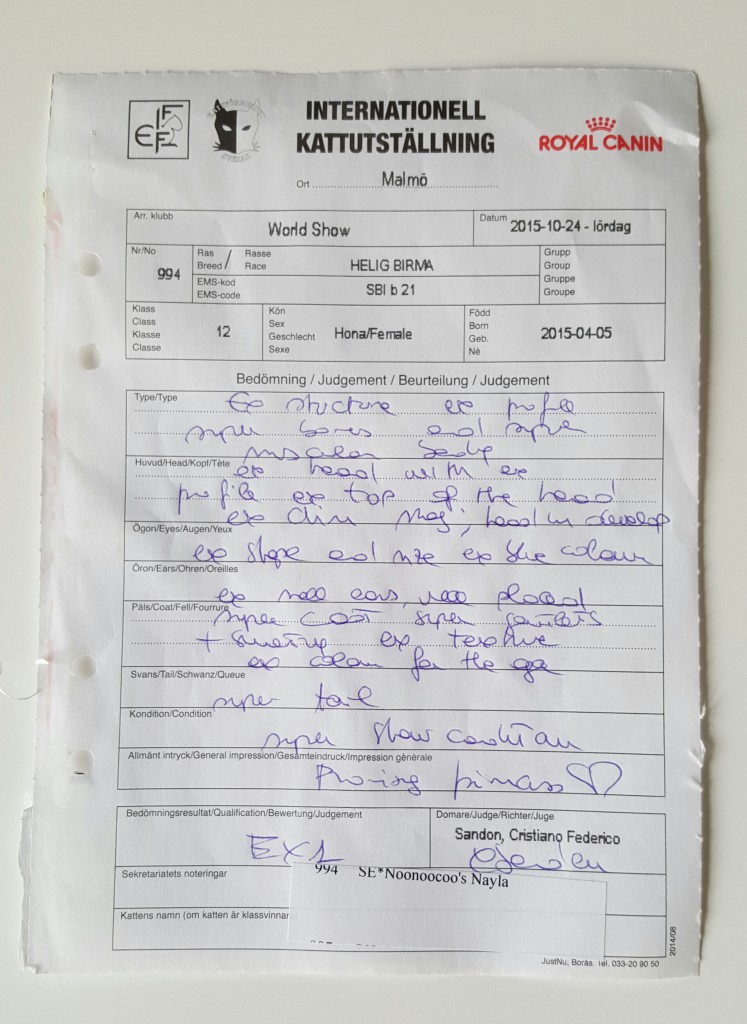 FIFE
INTERNATIONELL
KATTUTSTÄLLNING
ROYAL CANIN
Ort Malmö
Arr. klubb
World Show
Datum 2015-10-24 - lördag
Nr/No
994
Ras / Rasse
Breed / Race
HELIG BIRMA
EMS-kod
EMS-code
SBI b 21
Grupp
Group
Gruppe
Groupe
Klass
Class
Klasse
Classe
12
Kön
Sex
Geschlecht
Sexe
Hona/Female
Född
Born
Geb.
Né
2015-04-05
Bedömning / Judgement / Beurteilung / Judgement
Type/Type
Ex structure ex profile
super bones and super
body
Huvud/Head/Kopf/Tête
ex head with ex
profile ex top of the head
ex chin head in develop
Ögon/Eyes/Augen/Yeux
ex shape and size ex blue colour
Öron/Ears/Ohren/Oreilles
ex small ears, well placed
Päls/Coat/Fell/Fourrure
super coat super
+ ex texture
ex colour for the age
Svans/Tail/Schwanz/Queue
super tail
Kondition/Condition
super show condition
Allmänt intryck/General impression/Gesamteindruck/Impression gènèrale
Promising
Bedömningsresultat/Qualification/Bewertung/Judgement
EX1
Domare/Judge/Richter/Juge
Sandon, Cristiano Federico
Sekretariatets noteringar
994 SE*Noonoocoo's Nayla
Kattens namn (om katten är klassvinnar
2014/08
JustNu, Borås. Tel. 033-20 90 50